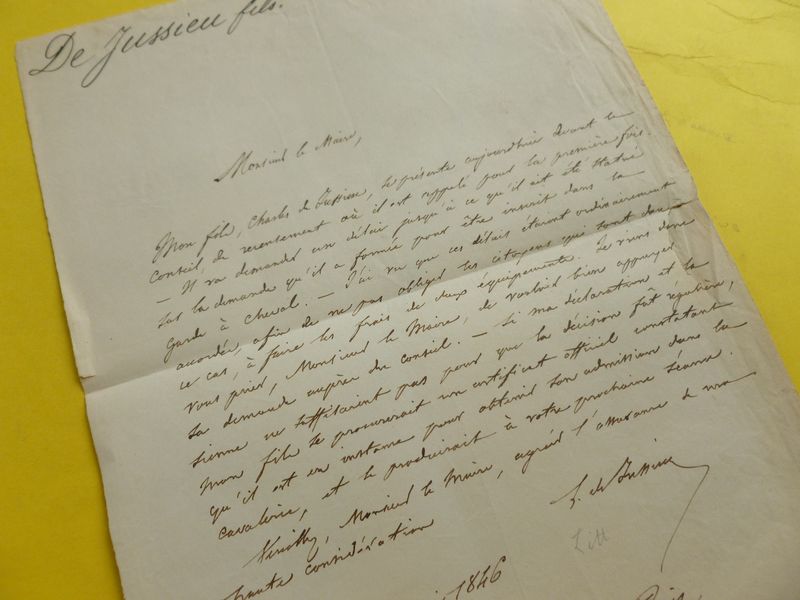 De Jussieu fils.
Monsieur le Maire,
Mon fils, Charles de Jussieu, se présente aujourd'hui devant le
Conseil de recensement où il est appelé pour la première fois.
— Il va demander un délai jusqu'à ce qu'il ait été statué
sur la demande qu'il a formée pour être inscrit dans la
garde à cheval. — J'ai vu que ces délais étaient ordinairement
accordés, afin de ne pas obliger les citoyens qui sont dans
ce cas, à faire les frais de deux équipements. Je viens donc
vous prier, Monsieur le Maire, de vouloir bien appuyer
sa demande auprès du conseil. — Si ma déclaration et la
sienne ne suffisaient pas pour que la décision fût régulière,
mon fils se procurerait un certificat officiel constatant
qu'il est en instance pour obtenir son admission dans la
cavalerie, et le produirait à votre prochaine séance.
Veuillez, Monsieur le Maire, agréer l'assurance de ma
haute considération
de Jussieu
Litt
1846